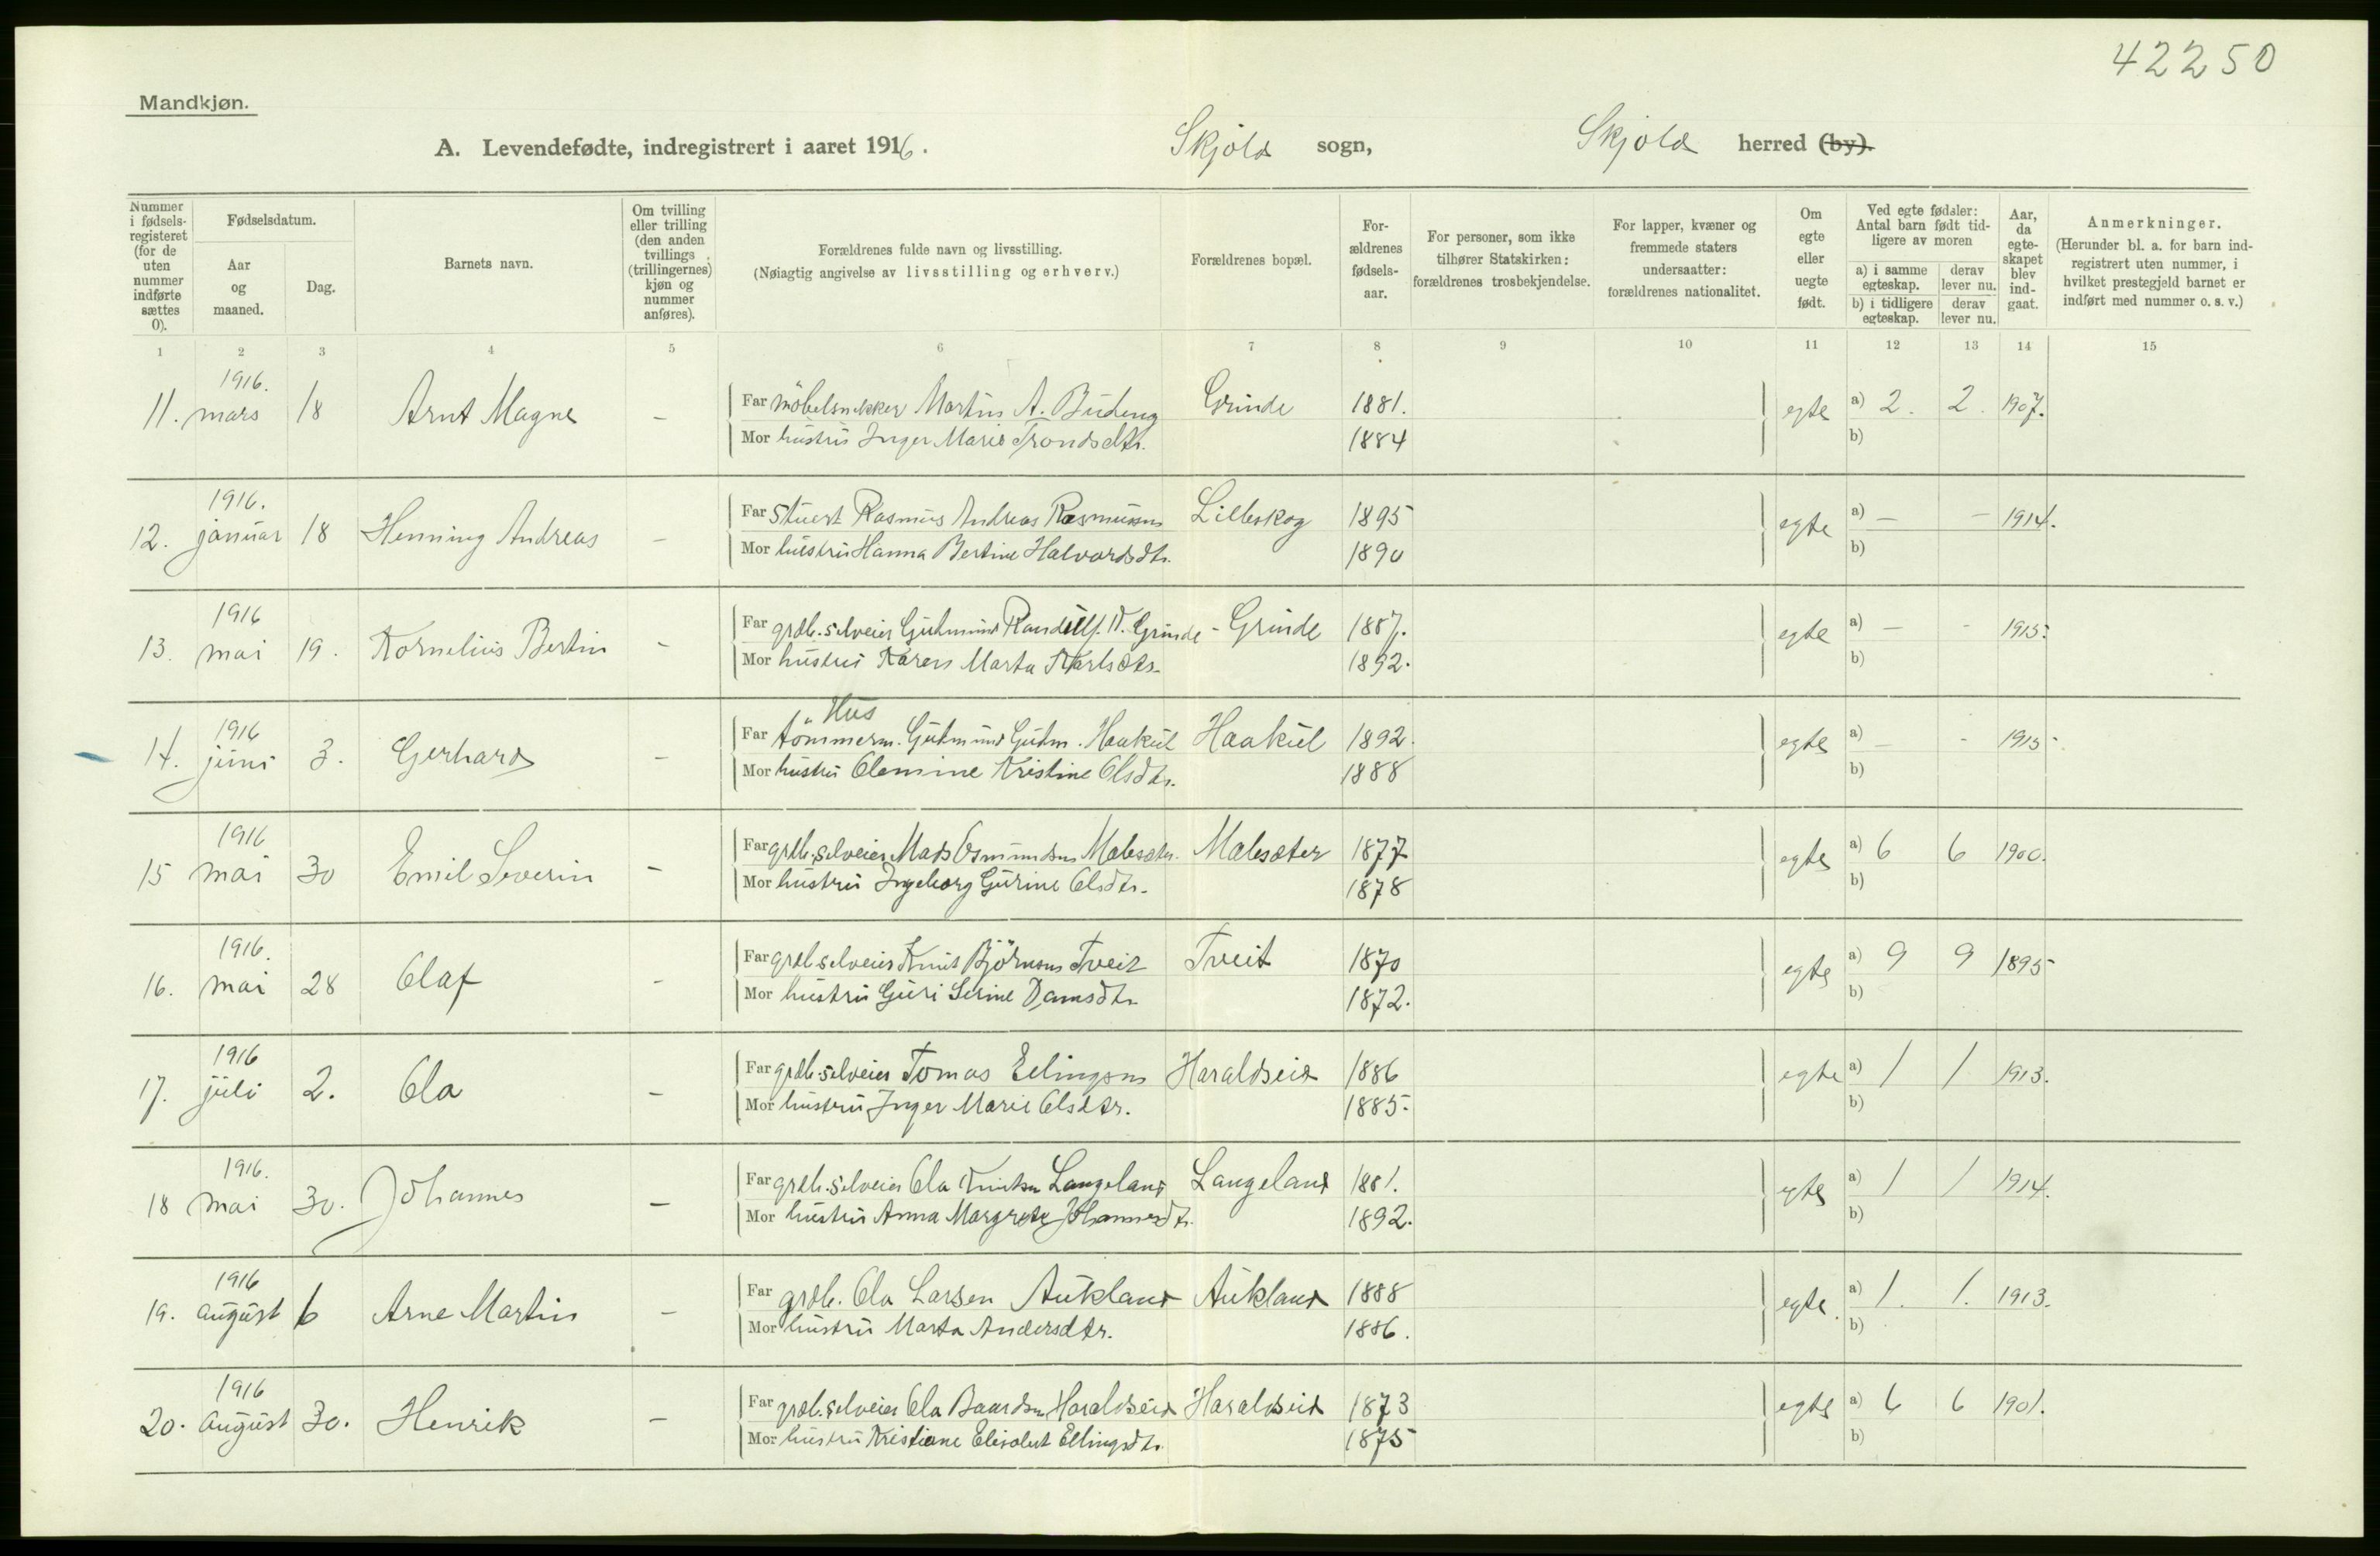 42250
Mandkjøn.
A. Levendefødte, indregistrert i aaret 1916. Skjold sogn, Skjold herred (by).
Nummer i fødsels-registeret (for de uten nummer indførte sættes 0).
Fødselsdatum.
Aar og maaned.
Dag.
Barnets navn.
Om tvilling eller trilling (den anden tvillings (trillingernes) kjøn og nummer anføres).
Forældrenes fulde navn og livsstilling.
(Nøiagtig angivelse av livsstilling og erhverv.)
Forældrenes bopæl.
For-ældrenes fødsels-aar.
For personer, som ikke tilhører Statskirken: forældrenes trosbekjendelse.
For lapper, kvæner og fremmede staters undersaatter: forældrenes nationalitet.
Om egte eller uegte født.
Ved egte fødsler: Antal barn født tid-ligere av moren
a) i samme egteskap.
derav lever nu.
b) i tidligere egteskap.
derav lever nu.
Aar, da egte-skapet blev ind-gaat.
Anmerkninger.
(Herunder bl. a. for barn ind-registrert uten nummer, i hvilket prestegjeld barnet er indført med nummer o. s. v.)
1 2 3 4 5 6 7 8 9 10 11 12 13 14 15
1916.
11. mars 18 Arnt Magne – Far möbelsnekker Martin A. Budeng Grinde 1881. egte a) 2. 2. 1907.
Mor hustru Inger Marie Trondsdtr. 1884 b)
1916.
12. januar 18 Henning Andreas – Far Stuert Rasmus Andreas Rasmussen Lilleskog 1895 egte a) – – 1914.
Mor hustru Hanna Bertine Halvardsdtr. 1890 b)
1916
13. mai 19. Kornelius Bertin – Far grdb. selveier Gudmund Randulf. N. Grinde - Grinde 1887. egte a) – - 1915.
Mor hustru Karen Marta Karlsdtr. 1892. b)
Hus
1916
14. juni 3. Gerhard – Far tömmerm. Gudmund Gudm. Haakul Haakul 1892. egte a) – - 1915.
Mor hustru Olemine Kristine Olsdtr. 1888 b)
1916
15 mai 30 Emil Severin – Far grdb. selveier Mads Osmundsen Malesæter. Malesæter 1877 egte a) 6 6 1900.
Mor hustru Ingeborg Gurine Olsdtr. 1878 b)
1916.
16. mai 28 Olaf - Far grdb. selveier Knut Björnsen Tveit Tveit 1870 egte a) 9 9 1895
Mor hustru Guri Serine Damsdtr 1872. b)
1916
17. juli 2. Ola – Far grdb. selveier Tomas Erlingsen Haraldseid 1886 egte a) 1 1 1913.
Mor hustru Inger Marie Olsdtr. 1885. b)
1916.
18 mai 30. Johannes – Far grdb. selveier Ola Knutsen Langeland Langeland 1881. egte a) 1 1 1914.
Mor hustru Anna Margrete Johannesdtr. 1892. b)
1916
19. august 6 Arne Martin – Far grdb. Ola Larsen Aukland Aukland 1888 egte. a) 1. 1. 1913.
Mor hustru Marta Andersdtr. 1886. b)
1916
20. august 30. Henrik – Far grdb. selveier Ola Baardsen Haraldseid Haraldseid 1873 egte a) 6 6 1901.
Mor hustru Kristiane Elisabet Ellingsdtr. 1875 b)